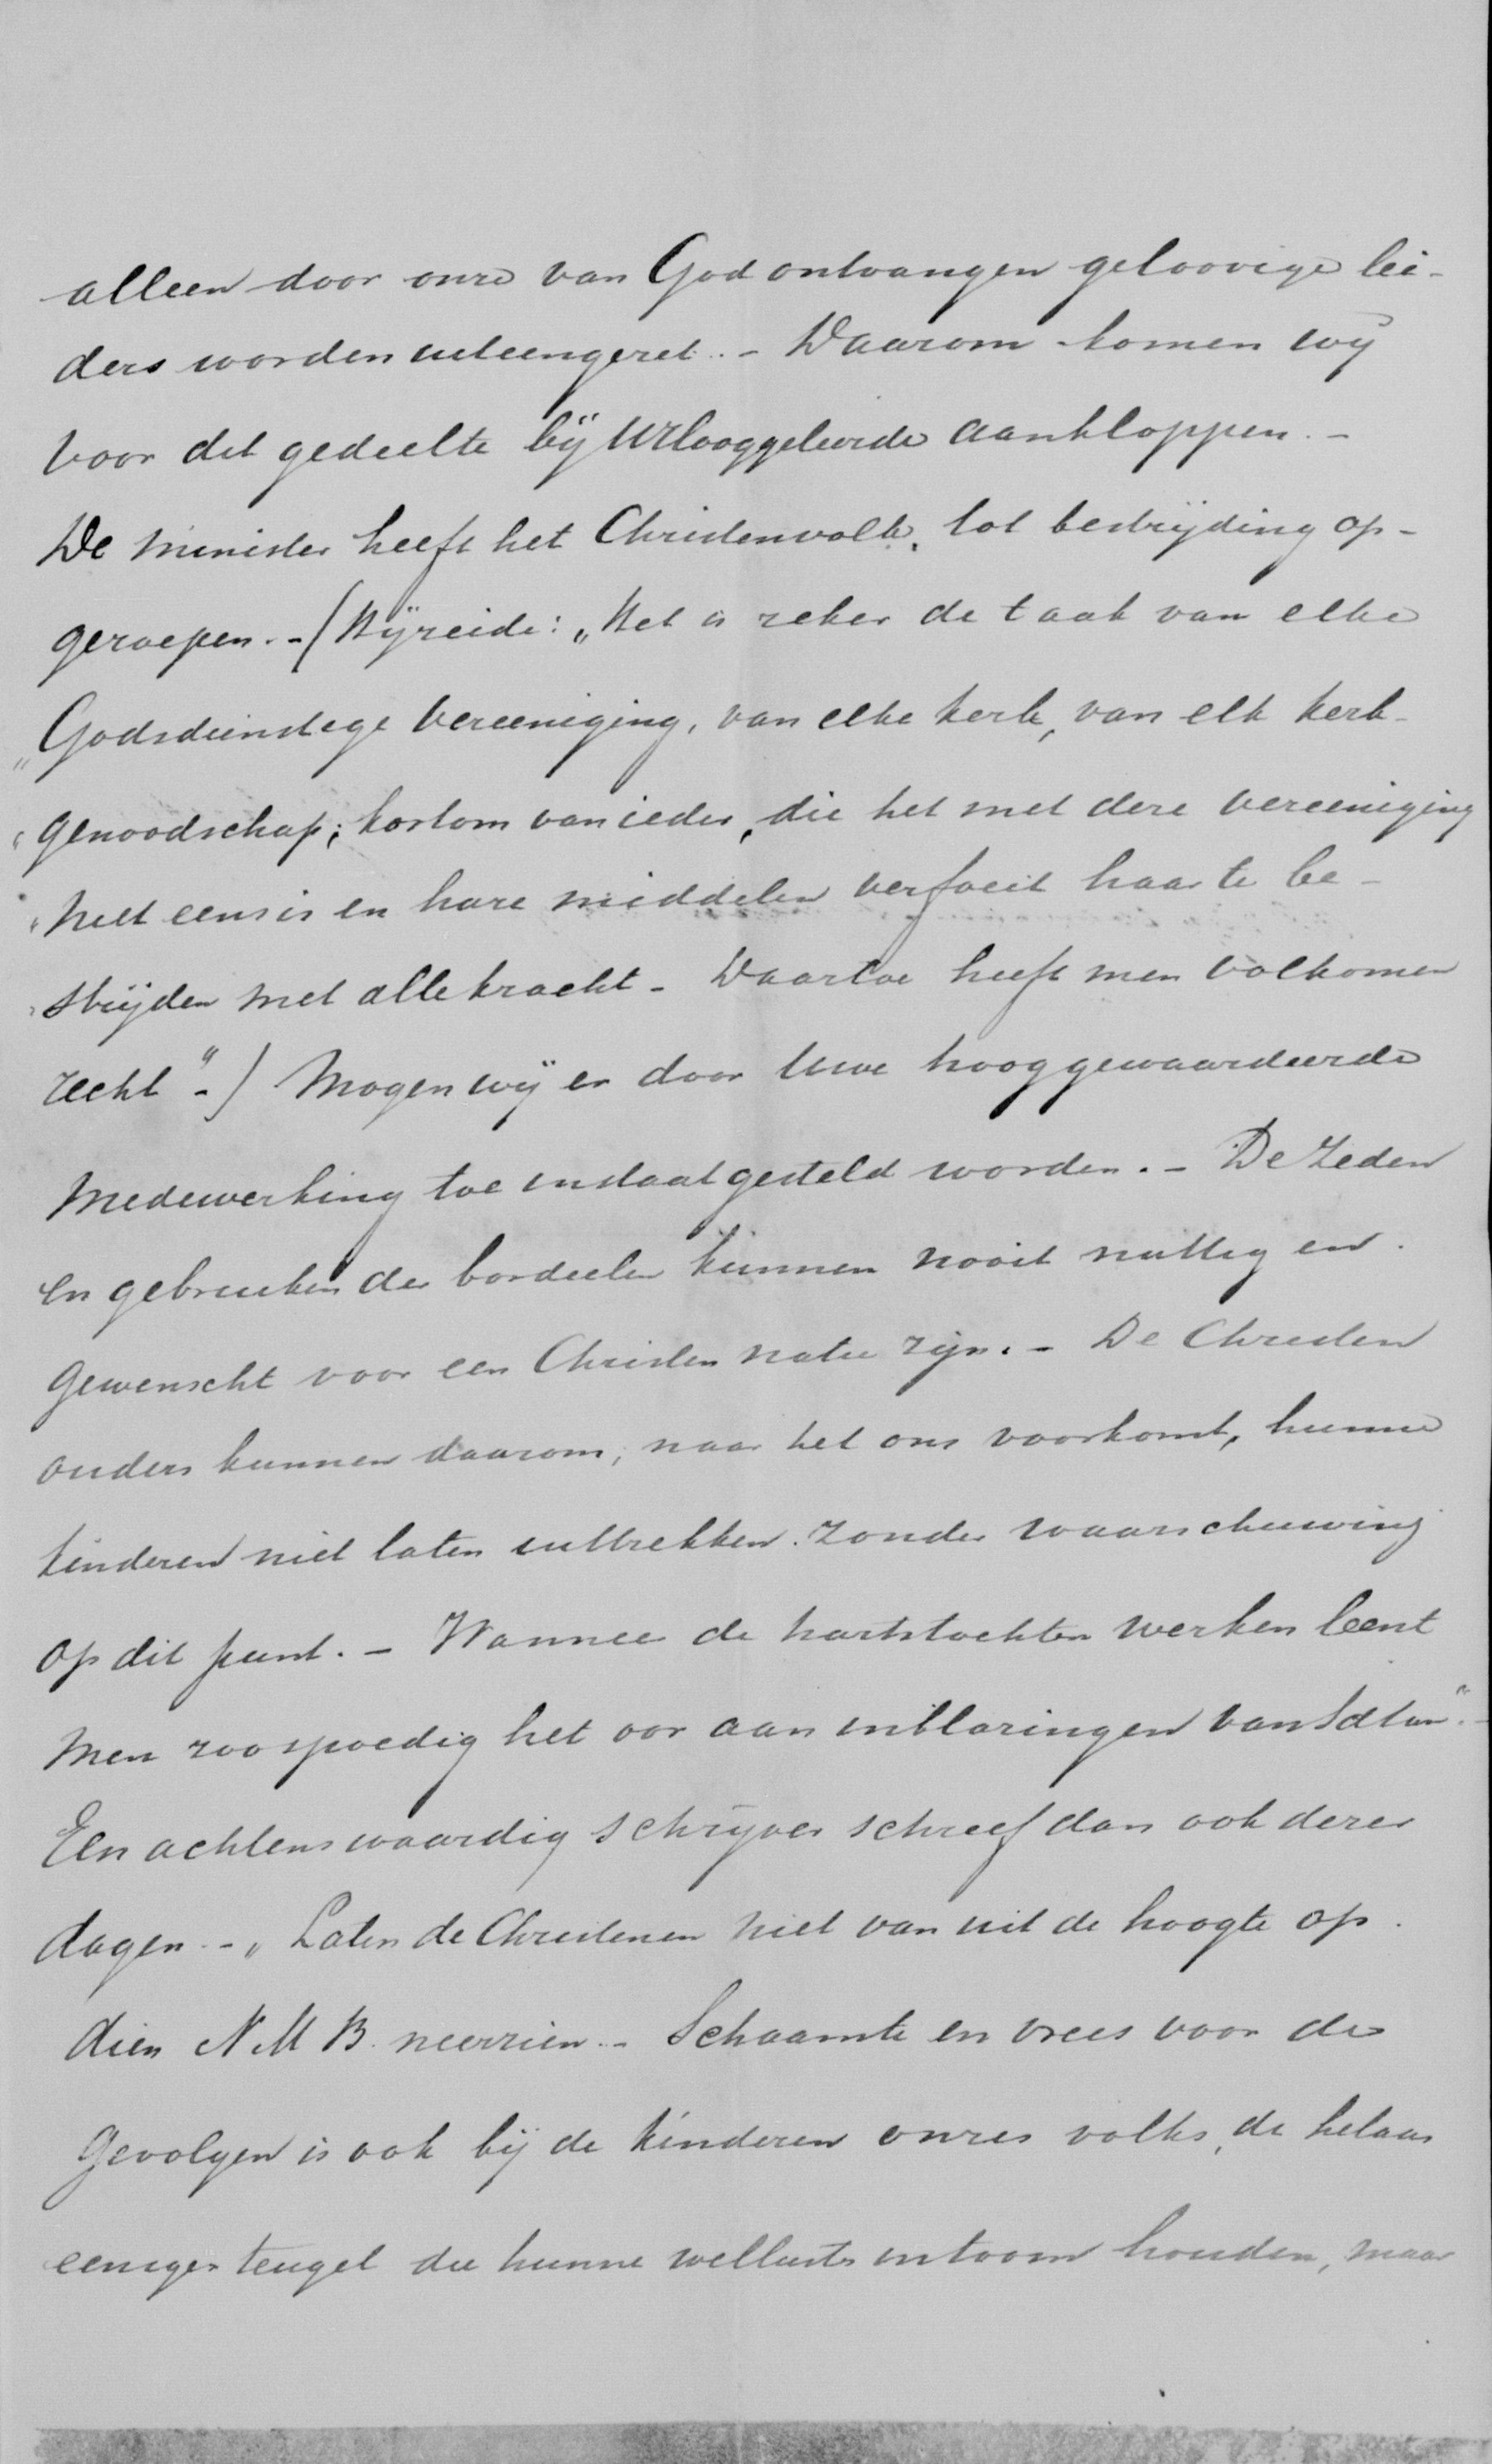 alleen door onze van God ontvangen geloovige lei-
ders worden uiteengezet. - Daarom komen wij
voor dit gedeelte bij UHooggeleerde aankloppen. -
De Minister heeft het Christenvolk, tot bestrijding op-
geroepen. - (Hij zeide: „Het is zeker de taak van elke
„Godsdienstige Vereeniging, van elke kerk, van elk kerk-
„genoodschap; kortom van ieder, die het met deze vereeniging
„niet eens is en hare middelen verfoeit haar te be-
„strijden met alle kracht - Daartoe heeft men volkomen
recht" -) Mogen wij er door Uwe hooggewaardeerde
Medewerking toe instaat gesteld worden. - De Zeden
en gebruiken der bordeelen kunnen nooit nuttig en
gewenscht voor een Christen natie zijn. - De Christen
ouders kunnen daarom, naar het ons voorkomt, hunne
kinderen niet laten uittrekken zonder waarschuwing
op dit punt. - Wanneer de hartstochten werken leent
men zoo spoedig het oor aan inblazingen van Satan". -
Een achtenswaardig schrijver schreef dan ook dezer
dagen. - „Laten de Christenen niet van uit de hoogte op
dien N.M.B. neerzien. - Schaamte en vrees voor de
gevolgen is ook bij de kinderen onzes volks, de helaas
eeniger teugel die hunne wellusts intoom houden, maar